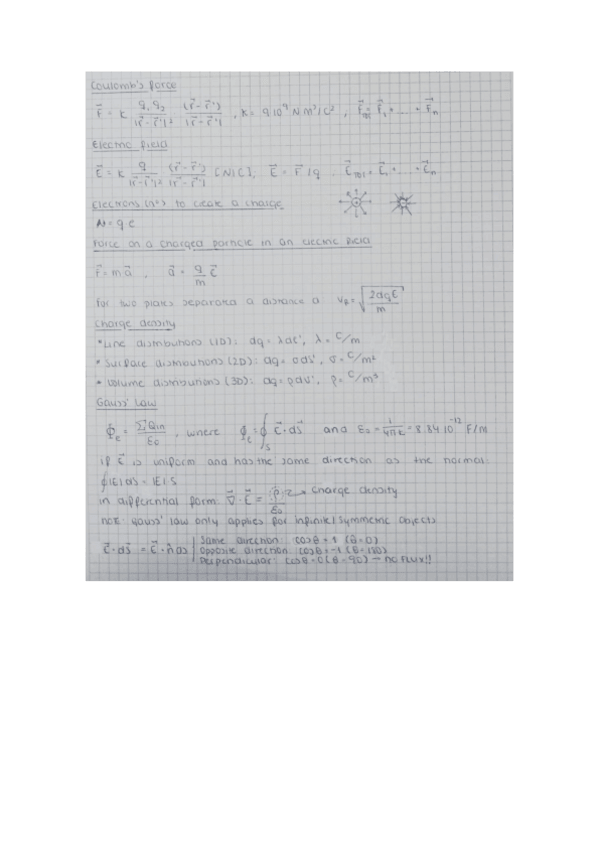 Coulomb's force
F⃗ = K q₁ q₂ / |r⃗ - r⃗'|² (r⃗ - r⃗') / |r⃗ - r⃗'| , K = 9·10⁹ N m²/C² , F⃗ₜₒₜ = F⃗₁ + ... + F⃗ₙ
Electric field
E⃗ = K q / |r⃗ - r⃗'|² (r⃗ - r⃗') / |r⃗ - r⃗'| [N/C], E⃗ = F⃗/q E⃗ₜₒₜ = E⃗₁ + ... + E⃗ₙ
Electrons (nº) to create a charge
N = q·e
Force on a charged particle in an electric field
F⃗ = m a⃗ , a⃗ = q/m E⃗
For two plates separated a distance d v_F = √(2dqE / m)
Charge density
• Line distributions (1D): dq = λdl', λ = C/m
• Surface distributions (2D): dq = σds', σ = C/m²
• Volume distributions (3D): dq = ρdv', ρ = C/m³
Gauss' Law
Φ_E = ΣQin / ε₀ , where Φ_E = ∮_S E⃗·ds⃗ and ε₀ = 1/4πK = 8.84·10⁻¹² F/m
if E⃗ is uniform and has the same direction as the normal:
∮|E|ds = |E|·S
in differential form ∇⃗·E⃗ = ρ/ε₀ → charge density
note: gauss' law only applies for infinite/symmetric objects
E⃗·ds⃗ = E⃗·n̂ ds | same direction: cosθ = 1 (θ=0)
opposite direction: cosθ = -1 (θ=180)
Perpendicular: cosθ = 0 (θ=90) → no flux!!